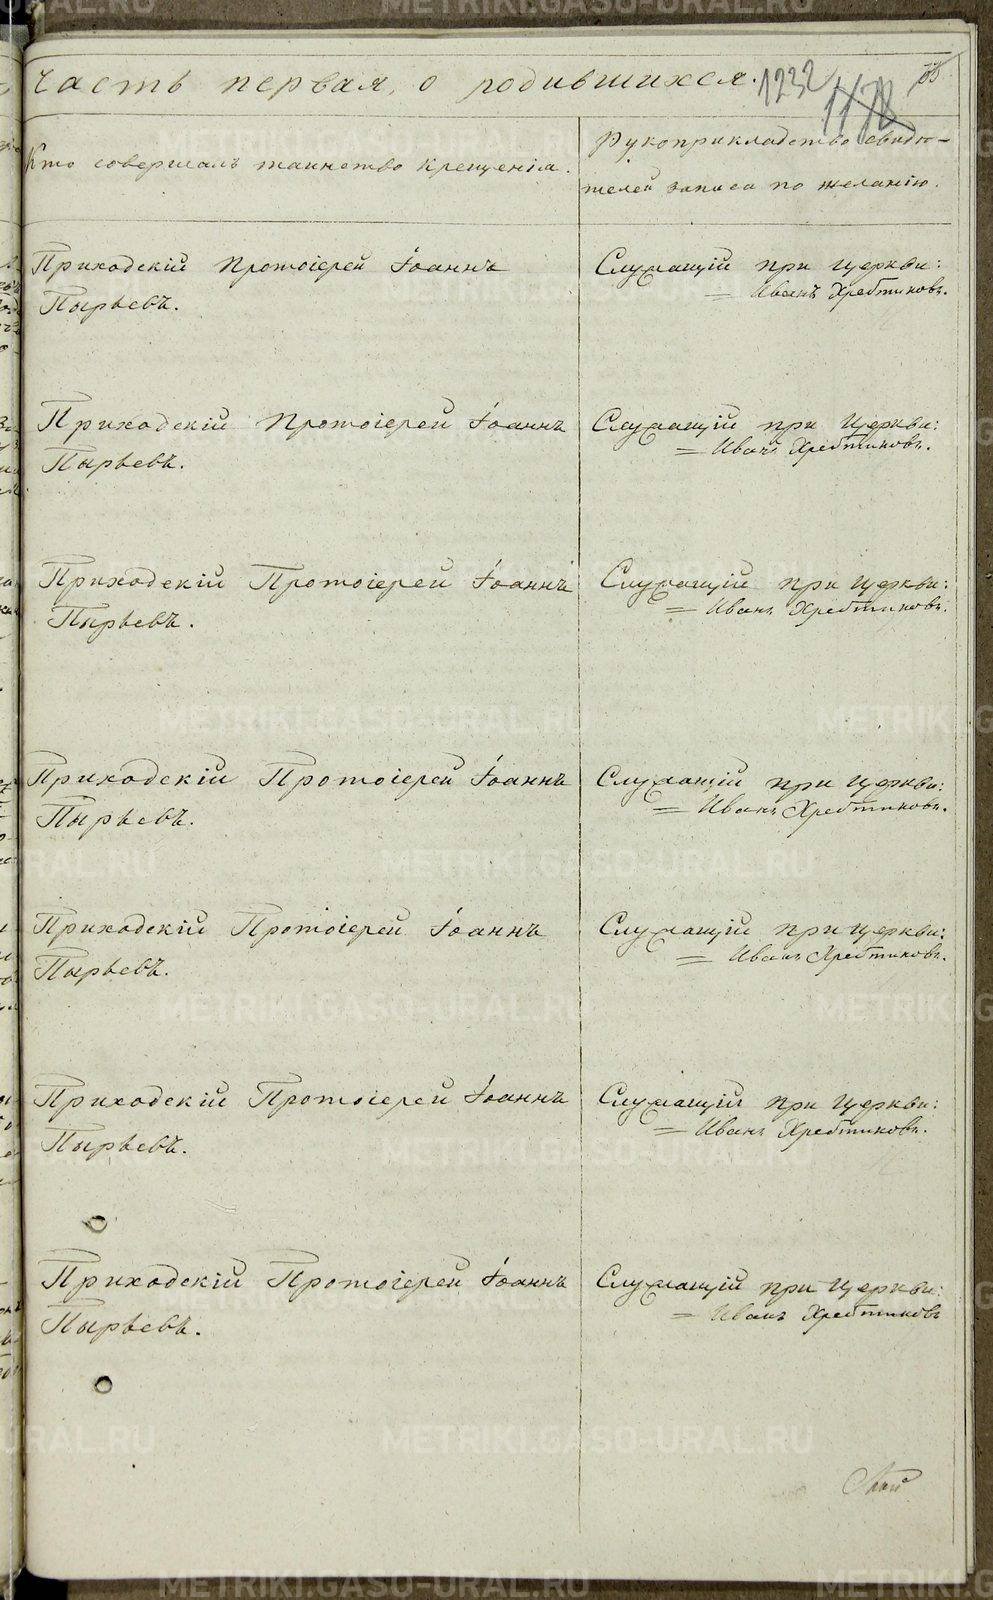 Часть первая, о родившихся.
1232
1178
Кто совершалъ таинство крещенія.
Рукоприкладство свидѣ-
телей записи по желанію.
Приходскій Протоіерей Іоаннъ
Пырьевъ.
Служащій при Церкви:
= Иванъ Хребтиковъ.
Приходскій Протоіерей Іоаннъ
Пырьевъ.
Служащій при Церкви:
= Иванъ Хребтиковъ.
Приходскій Протоіерей Іоаннъ
Пырьевъ.
Служащій при Церкви:
= Иванъ Хребтиковъ.
Приходскій Протоіерей Іоаннъ
Пырьевъ.
Служащій при Церкви:
= Иванъ Хребтиковъ.
Приходскій Протоіерей Іоаннъ
Пырьевъ.
Служащій при Церкви:
= Иванъ Хребтиковъ.
Приходскій Протоіерей Іоаннъ
Пырьевъ.
Служащій при Церкви:
= Иванъ Хребтиковъ.
Приходскій Протоіерей Іоаннъ
Пырьевъ.
Служащій при Церкви:
= Иванъ Хребтиковъ
METRIKI.GASO-URAL.RU